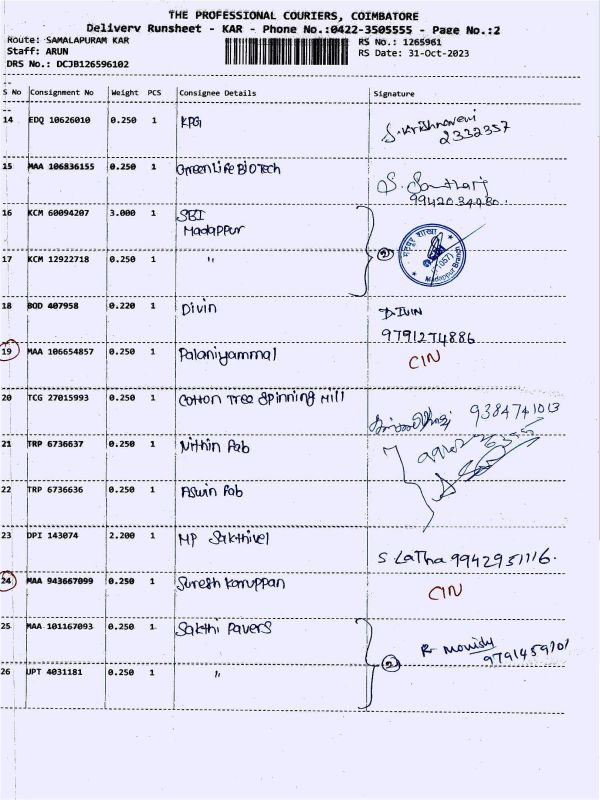 THE PROFESSIONAL COURIERS, COIMBATORE
Delivery Runsheet - KAR - Phone No.:0422-3505555 - Page No.:2
Route: SAMALAPURAM KAR
RS No.: 1265961
Staff: ARUN
RS Date: 31-Oct-2023
DRS No.: DCJB126596102
S No Consignment No Weight PCS Consignee Details Signature
14 EDQ 10626010 0.250 1 KPG S. Krishnaveni
2332357
15 MAA 106836155 0.250 1 Greenlife Biotech
16 KCM 60094207 3.000 1 SBI
Madappur
17 KCM 12922718 0.250 1 " ②
Madappur Branch
18 BOD 407958 0.220 1 Divin D. IVIN
9791274886
19 MAA 106654857 0.250 1 Palaniyammal CIN
20 TCG 27015993 0.250 1 Cotton Tree Spinning Mill 9384741013
21 TRP 6736637 0.250 1 Nithin Fab
22 TRP 6736636 0.250 1 Aswin Fab
23 DPI 143074 2.200 1 MP Sakthivel S LaTha 9942951116.
24 MAA 943667099 0.250 1 Suresh Karuppan CIN
25 MAA 101167093 0.250 1 Sakthi Pavers
26 UPT 4031181 0.250 1 " ②